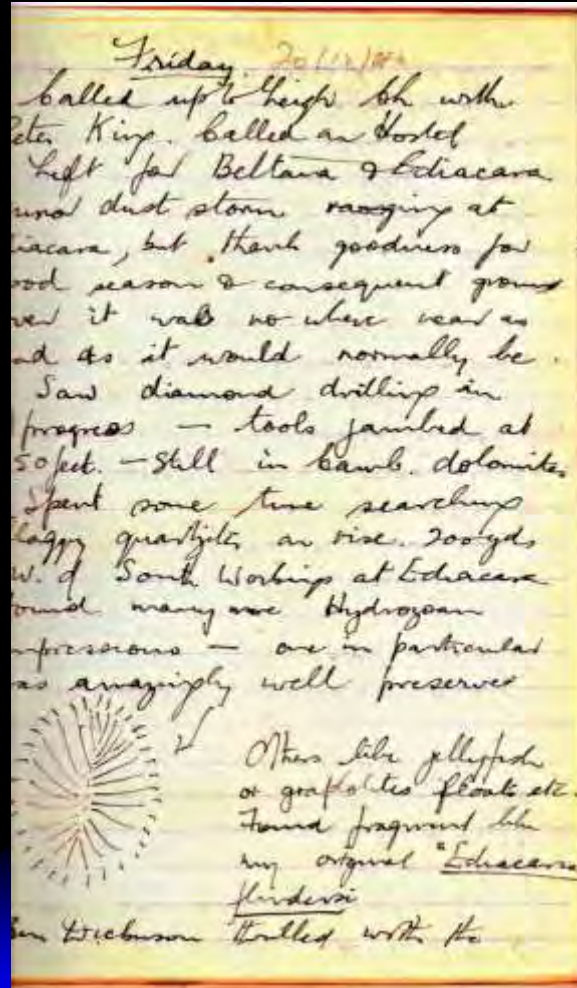 Friday. 20/12/
Called up to Leigh Ck with
Peter King. Called on Hostel
Left for Beltana & Ediacara
dust storm raging at
diacara, but thank goodness for
ood season & consequent ground
ver it was no where near as
ad as it would normally be.
Saw diamond drilling in
progress — tools jambed at
50 feet. — Still in Camb. dolomites
Spent some time searching
flaggy quartzites on rise. 200 yds
W. of South Workings at Ediacara
ound many more Hydrozoan
mpressions — one in particular
as amazingly well preserved
Others like jellyfish
or graptolites floats etc.
Found fragment like
my original "Ediacaria
flindersi
Ben Dickinson thrilled with the